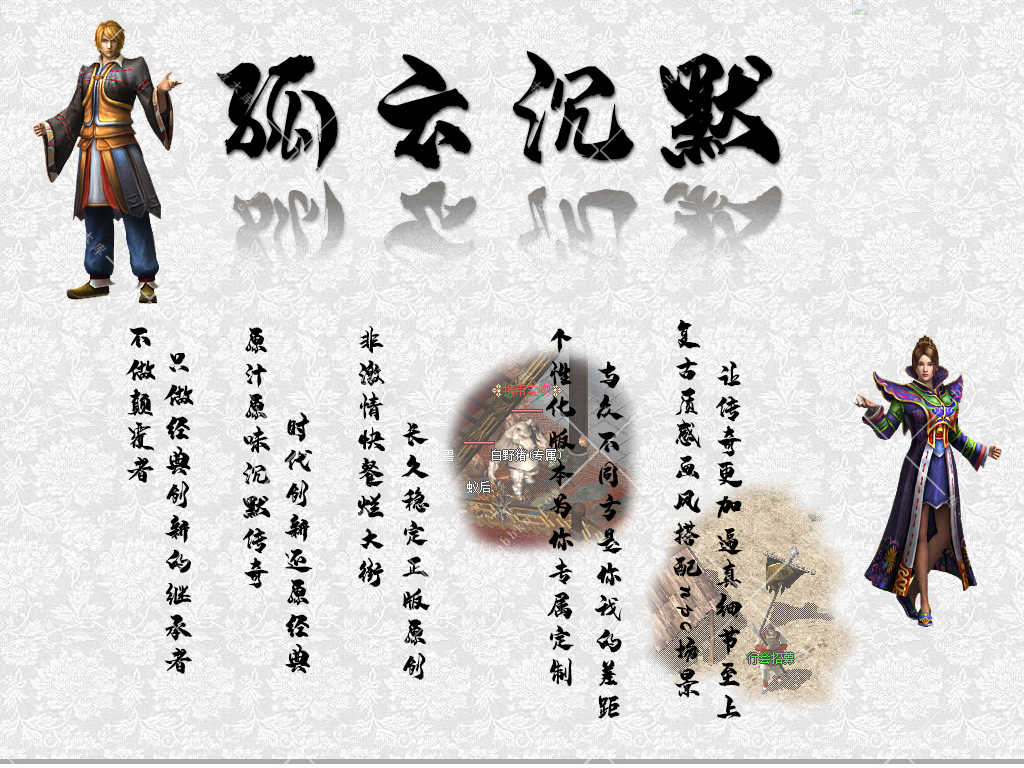 孤云沉默
不做颠覆者
只做经典创新的继承者
原汁原味沉默传奇
时代创新还原经典
非激情快餐烂大街
长久稳定正版原创
个性化版本为你专属定制
与众不同方是你我的差距
复古质感画风搭配npc场景
让传奇更加逼真细节至上
白野猪(专属)
蚁后
行会招募